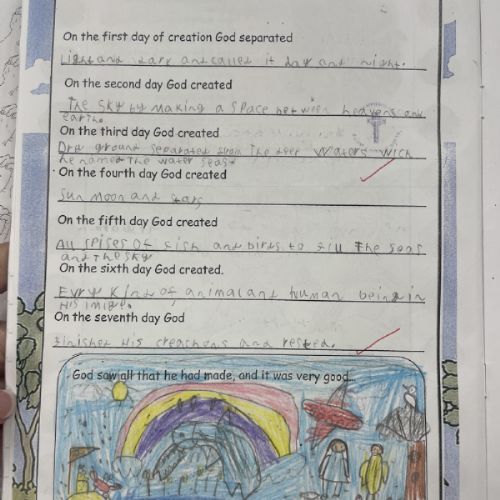 On the first day of creation God separated
Light and dark and called it day and night.
On the second day God created
The sky by making a space between heavens and
earth.
On the third day God created
Dry ground separated from the deep waters wich
he named the water seas.
On the fourth day God created
Sun Moon and stars
On the fifth day God created
All spises of fish and birds to fill the seas
and the sky
On the sixth day God created.
Evry kind of animal and human being in
His imige.
On the seventh day God
finished His creashons and rested.
God saw all that he had made, and it was very good...